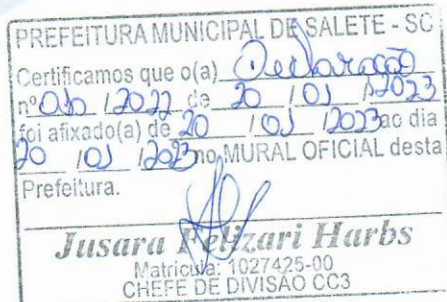 PREFEITURA MUNICIPAL DE SALETE - SC
Certificamos que o(a) Declaração
nº /2022 de 20 / 01 / 2023
foi afixado(a) de 20 / 01 / 2023 ao dia
20 / 01 / 2023 no MURAL OFICIAL desta
Prefeitura.
Jusara Felizari Harbs
Matrícula: 1027425-00
CHEFE DE DIVISÃO CC3